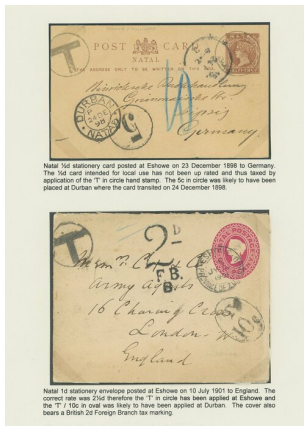 T
POST CARD
NATAL
THE ADDRESS ONLY TO BE WRITTEN ON THIS
NATAL
DURBAN
NATAL
5c
Germany
Natal ½d stationery card posted at Eshowe on 23 December 1898 to Germany.
The ½d card intended for local use has not been up rated and thus taxed by
application of the 'T' in circle hand stamp. The 5c in circle was likely to have been
placed at Durban where the card transited on 24 December 1898.
T
2D
F.B.
B
Army Agents
16 Charing Cross
London
England
Natal 1d stationery envelope posted at Eshowe on 10 July 1901 to England. The
correct rate was 2½d therefore the 'T' in circle has been applied at Eshowe and
the 'T' / 10c in oval was likely to have been applied at Durban. The cover also
bears a British 2d Foreign Branch tax marking.